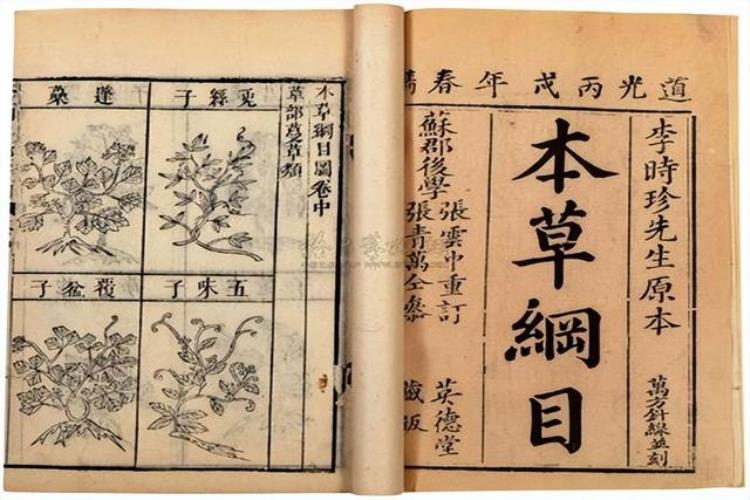 道光丙戌年春鐫
李時珍先生原本
萬方針線並刻
本草綱目
蘇郡後學
張雲中重訂
張青萬仝參
英德堂
藏板
本草綱目圖卷中
草部蔓草類
兔絲子
蓬蔂
五味子
覆盆子